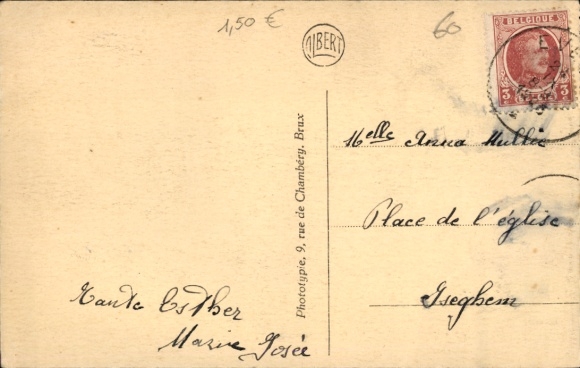 1,50 €
60
ALBERT
BELGIQUE
3 3
Phototypie, 9, rue de Chambéry, Brux
Melle Anna Hullie
Place de l'église
Iseghem
Tante Esther
Marie Josée